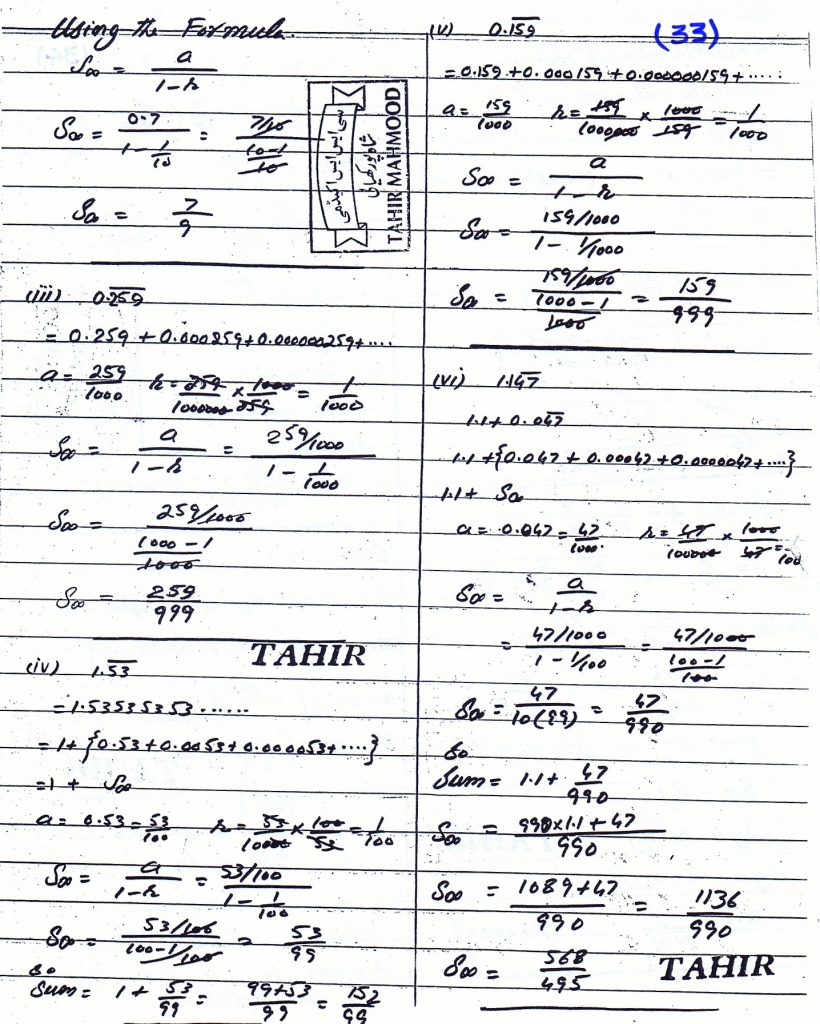 Using the Formula.
S∞ = a / 1-r
S∞ = 0.7 / 1 - 1/10 = 7/10 / 10-1/10
S∞ = 7/9
سی ایس ایس اکیڈمی
TAHIR MAHMOOD
(iii) 0.2̅5̅9̅
= 0.259 + 0.000259 + 0.000000259 + ....
a = 259/1000 r = 259/1000000 × 1000/259 = 1/1000
S∞ = a / 1-r = 259/1000 / 1 - 1/1000
S∞ = 259/1000 / 1000-1/1000
S∞ = 259/999
TAHIR
(iv) 1.5̅3̅
= 1.53535353......
= 1 + {0.53 + 0.0053 + 0.000053 + ....}
= 1 + S∞
a = 0.53 = 53/100 r = 53/10000 × 100/53 = 1/100
S∞ = a / 1-r = 53/100 / 1 - 1/100
S∞ = 53/100 / 100-1/100 = 53/99
So
Sum = 1 + 53/99 = 99+53 / 99 = 152/99
(v) 0.1̅5̅9̅ (33)
= 0.159 + 0.000159 + 0.000000159 + .....
a = 159/1000 r = 159/1000000 × 1000/159 = 1/1000
S∞ = a / 1-r
S∞ = 159/1000 / 1 - 1/1000
S∞ = 159/1000 / 1000-1/1000 = 159/999
(vi) 1.14̅7̅
1.1 + 0.04̅7̅
1.1 + {0.047 + 0.00047 + 0.0000047 + ....}
1.1 + S∞
a = 0.047 = 47/1000 r = 47/100000 × 1000/47 = 1/100
S∞ = a / 1-r
= 47/1000 / 1 - 1/100 = 47/1000 / 100-1/100
S∞ = 47 / 10(99) = 47/990
So
Sum = 1.1 + 47/990
S∞ = 990×1.1+47 / 990
S∞ = 1089+47 / 990 = 1136/990
S∞ = 568/495
TAHIR